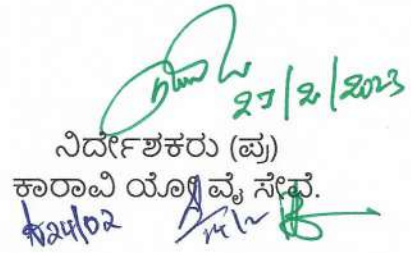 27/2/2023
ನಿರ್ದೇಶಕರು (ಪ್ರ)
ಕಾರಾವಿ ಯೋ ವೈ ಸೇವೆ.
24/02